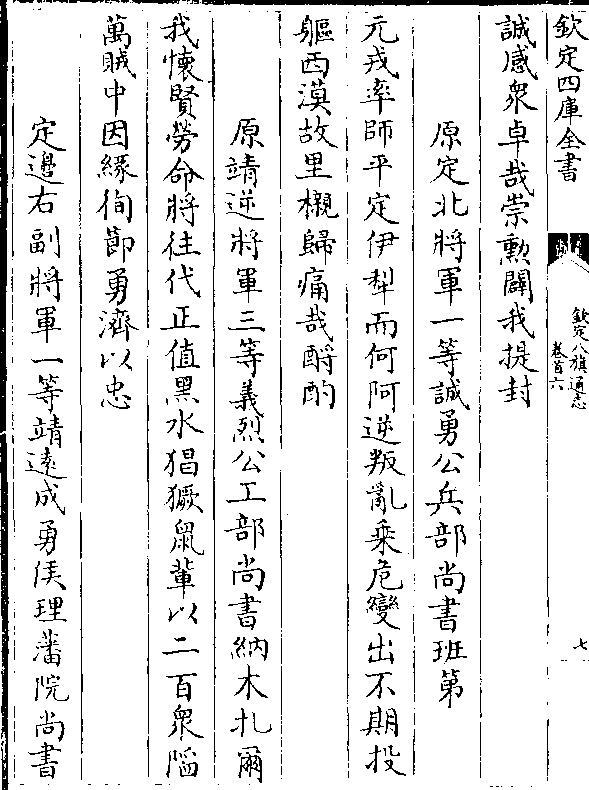 欽定四庫全書
欽定八旗通志
卷首六
七
誠感衆卓哉崇勲闢我提封
原定北將軍一等誠勇公兵部尚書班第
元戎率師平定伊犁而何阿逆叛亂乗危變出不期投
軀西漠故里櫬歸痛哉酹酌
原靖逆將軍三等義烈公工部尚書納木扎爾
我懷賢勞命將往代正值黑水猖獗鼠輩以二百衆陷
萬賊中因緣徇節勇濟以忠
定邉右副將軍一等靖逺成勇侯理藩院尚書